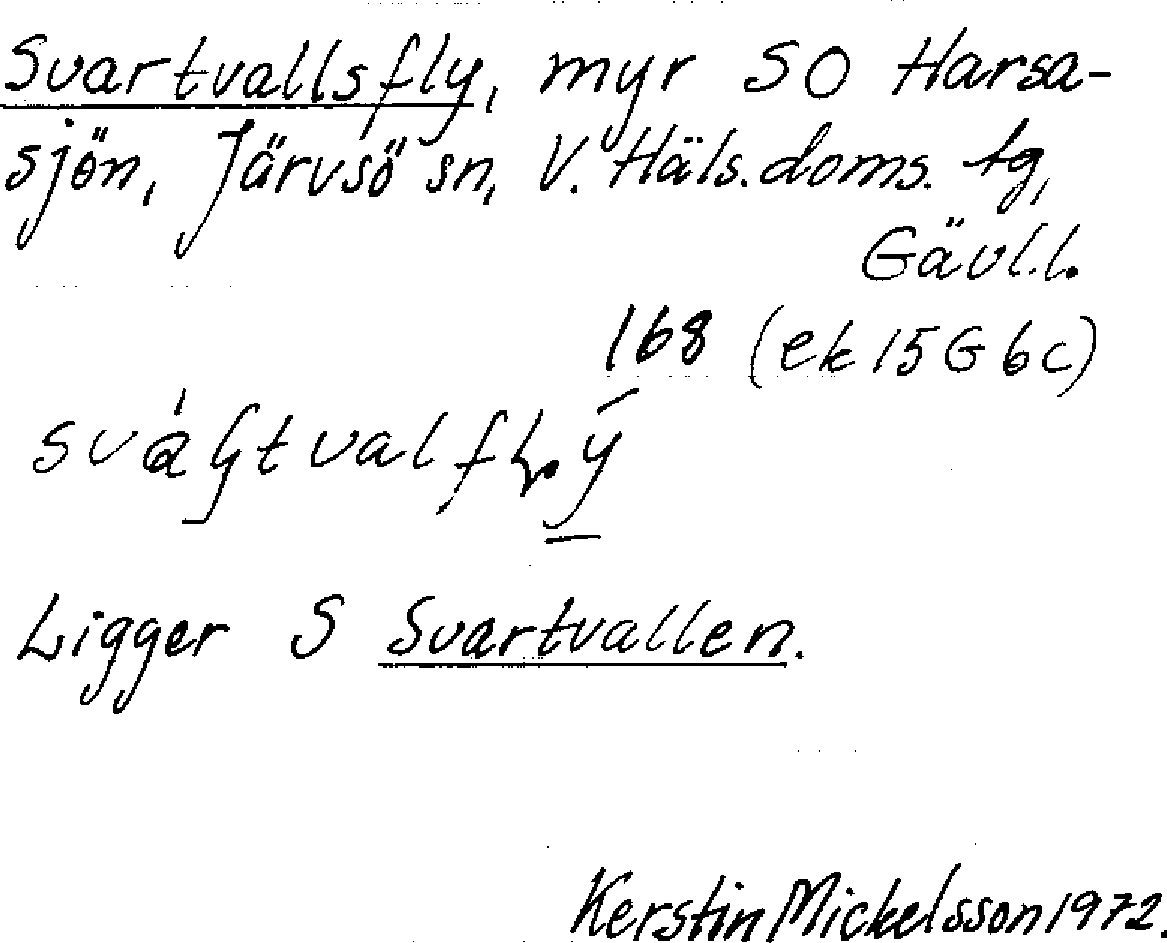 Svartvallsfly, myr SO Harsa-
sjön, Järvsö sn, V. Häls. doms. tg,
Gävl.l.
168 (ek 15G 6c)
Ligger S Svartvallen.
Kerstin Mickelsson 1972.